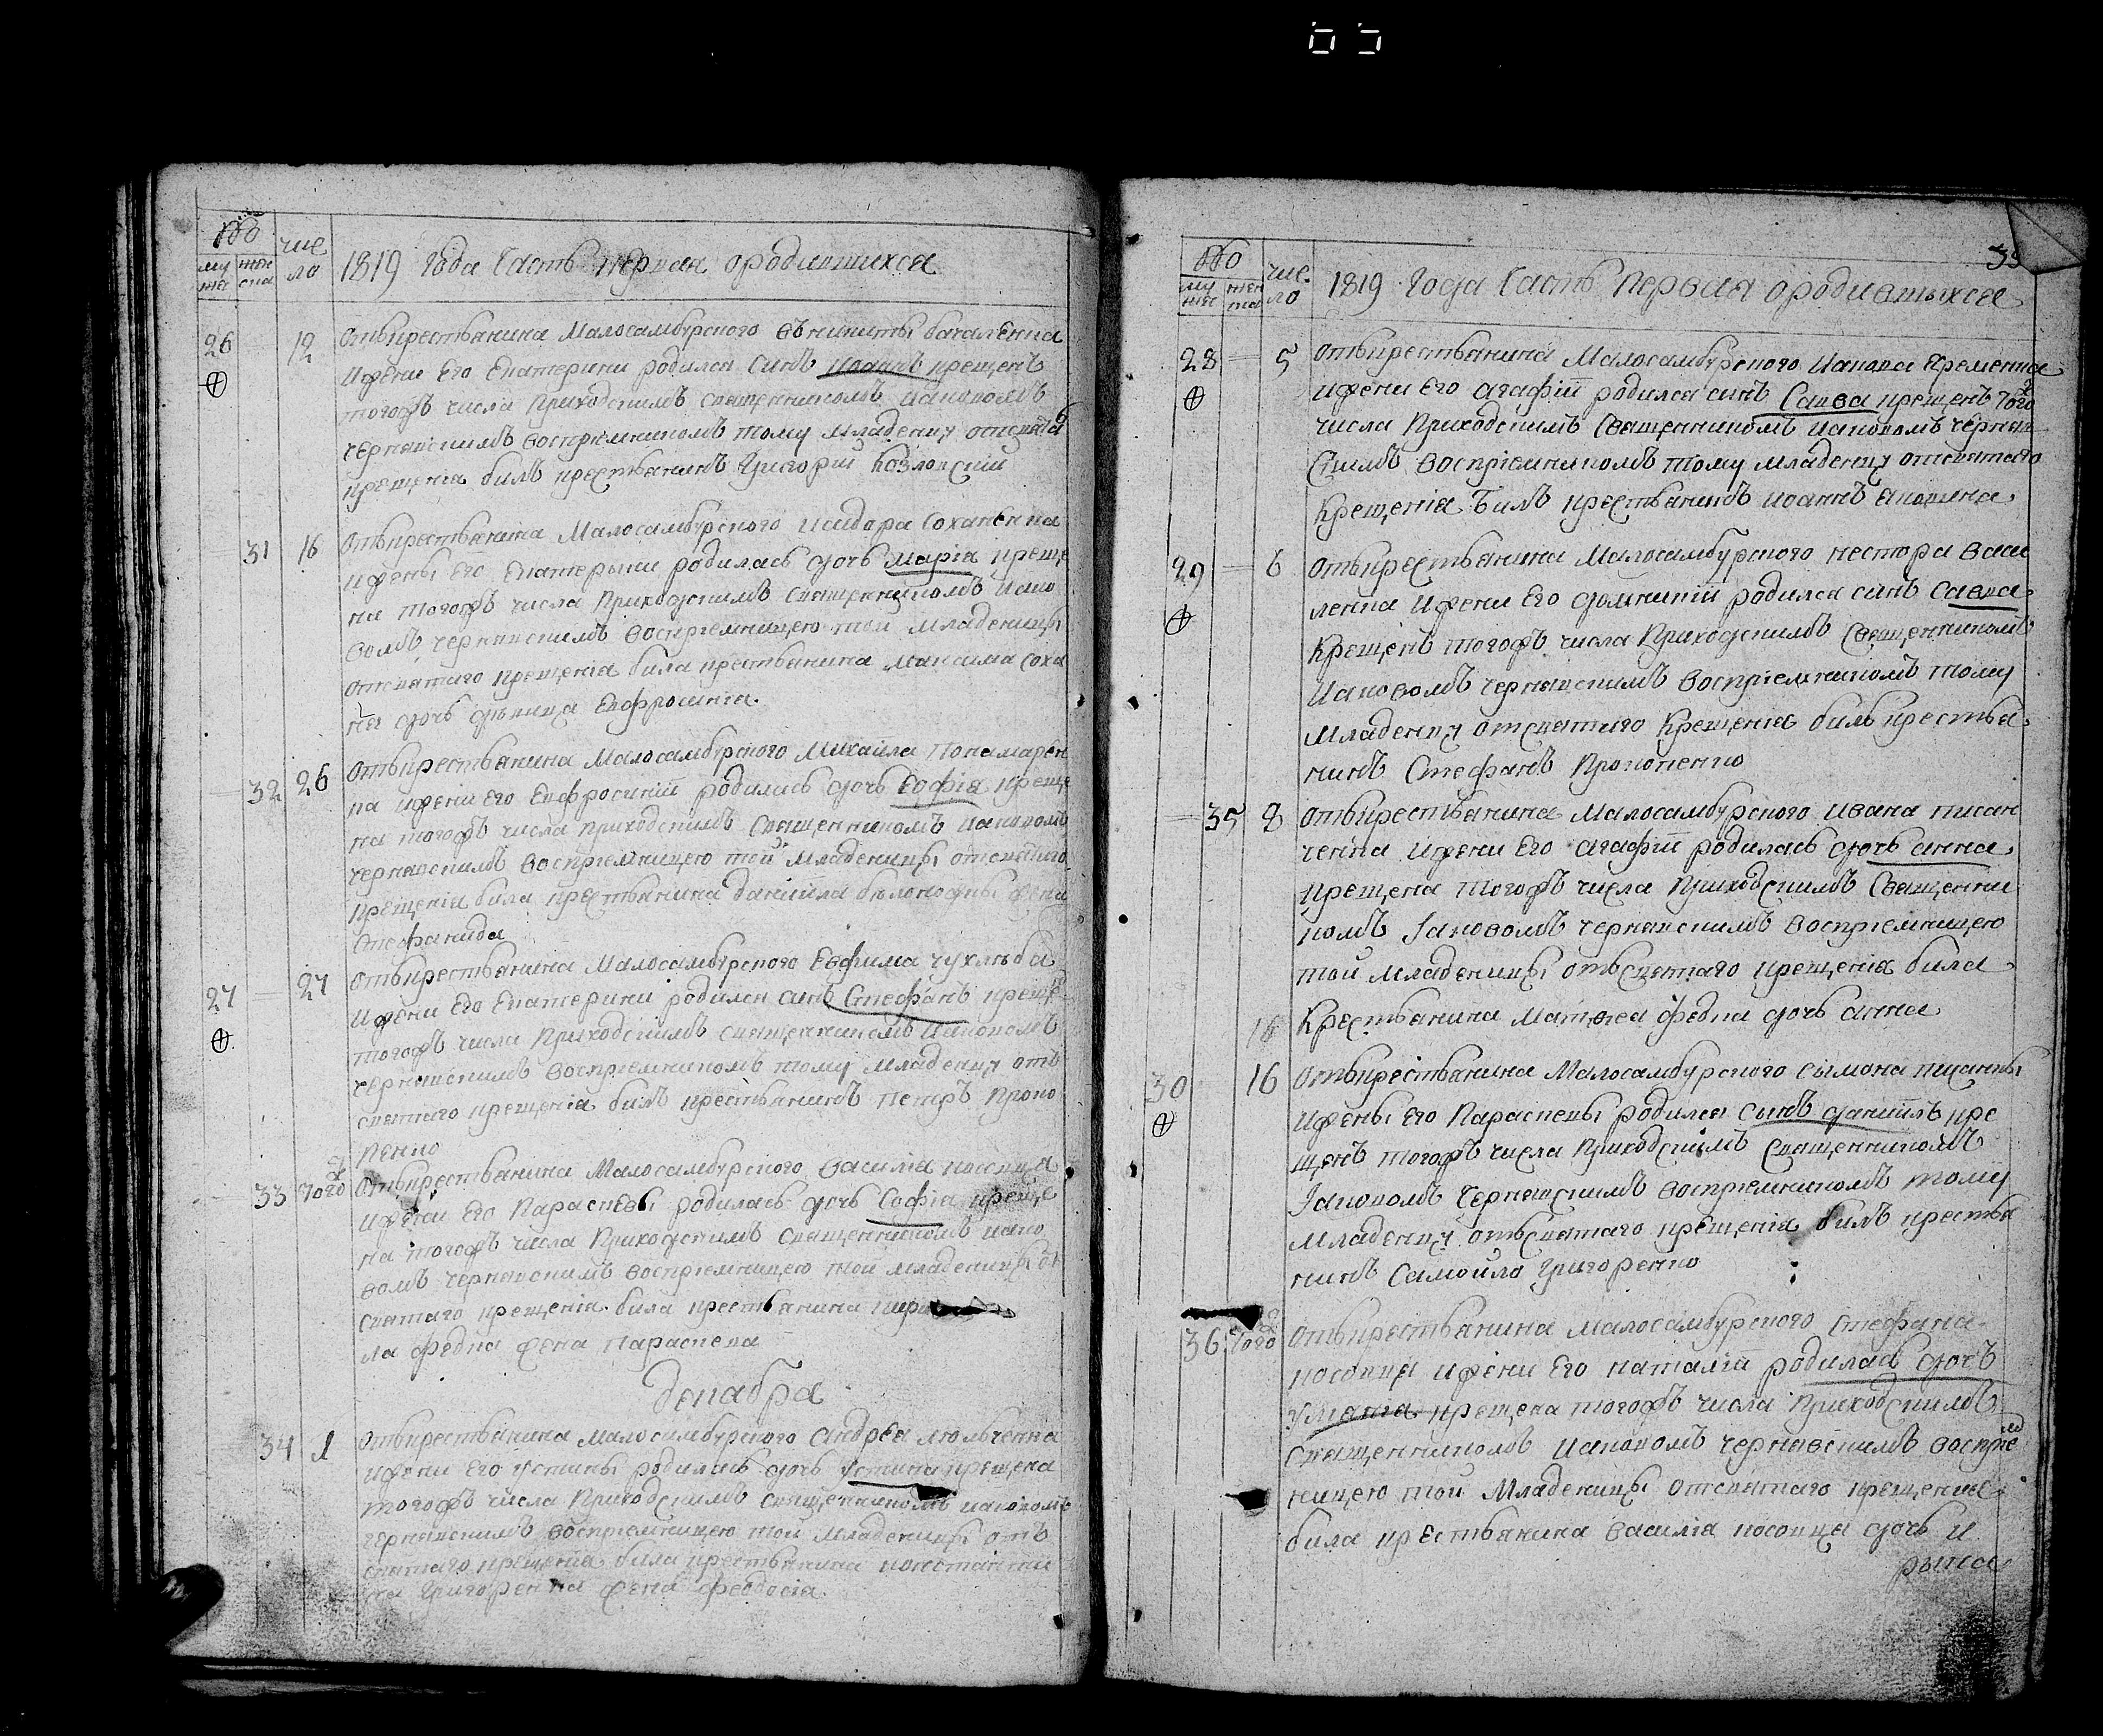 чис
ло
му
жес
жен
ска
1819 Года Часть первая ородившихся
26
12
Отъкрестьянина Малосамбурского
Ижени Его Екатерини родился Синъ Иоаннъ крещенъ
тогожъ числа Приходскимъ священникомъ Иаковомъ
Чернявскимъ восприемникомъ тому Младенцу отсвята
крещения билъ крестьянинъ Григорий Козловский
31
16
Отъкрестьянина Малосамбурского Исидора Соханенка
Ижены Его Екатерыни родилась дочь Мария креще
на тогожъ числа Приходскимъ Священникомъ Иако
вомъ Чернявскимъ восприемницею той Младеницы
отсвятаго крещенія била крестьянина Максима Соха
дочь девица Евфросинія.
32
26
Отъкрестьянина Малосамбурского Михаила Понамарен
ка ижени Его Евфросиніи родилась дочь Софія креще
на тогожъ числа Приходскимъ Священникомъ Иаковомъ
Чернявскимъ восприемницею той Младеницы отсвятаго
крещенія била крестьянина Даніила жена
Стефанида
27
27
Отъкрестьянина Малосамбурского Евфима Чухлеба
Ижени Его Екатерини родился синъ Стефанъ креще
тогожъ числа Приходскимъ священникомъ Иаковомъ
Чернявскимъ восприемникомъ тому младенцу отъ
святаго крещенія билъ крестьянинъ Петръ Проко
пенко
33
Того
Отъкрестьянина Малосамбурского Василія Косовца
Ижени Его Параскевы родилась дочь Софія креще
на тогожъ числа Приходскимъ Священникомъ Иако
вомъ Чернявскимъ восприемницею той младеницы от
святаго крещенія била крестьянина Кири
ла Федка жена Параскева
Декабра
34
1
Отъкрестьянина Малосамбурского Андрея Люльченка
Ижени Его Устины родилась дочь Устина крещена
тогожъ числа Приходскимъ священникомъ Иаковомъ
Чернявскимъ восприемницею той Младеницы отъ
святаго крещенія била крестьянина Константи
на Григоренка жена Феодосія
39
чис
ло
му
жес
жен
ска
1819 Года Часть Первая ородившыхся
28
5
Отъкрестьянина Малосамбурского Иакова Еременка
Ижени Его Агафіи родился синъ Савва крещенъ того
числа Приходскимъ Священникомъ Иаковомъ Черняв
Скимъ восприемникомъ тому младенцу отсвятаго
Крещенія билъ крестьянинъ Иоаннъ
29
6
Отъкрестьянина Малосамбурского Нестора Васи
ленка Ижени Его Домникіи родился синъ Савва
Крещенъ тогожъ числа Приходскимъ Священникомъ
Иаковомъ Чернявскимъ Восприемникомъ тому
Младенцу отсвятаго Крещенія билъ крестья
нинъ Стефанъ Прокопенко
35
8
Отъкрестьянина Малосамбурского Ивана Писан
ченка Ижени Его Агафіи родилась дочь Анна
крещена тогожъ числа Приходскимъ Священни
комъ Іаковомъ Чернявскимъ Восприемницею
той Младеницы отъСвятаго крещенія била
Крестьянина Матвея Федка дочь Анна
16
30
16
Отъкрестьянина Малосамбурского Сымона
Ижены Его Параскевы родился Сынъ Даніилъ кре
щенъ тогожъ числа Приходскимъ Священникомъ
Іаковомъ Чернявскимъ восприемникомъ тому
младенцу отъСвятаго крещенія билъ крестья
нинъ Самойло Григоренко
36
Того
Отъкрестьянина Малосамбурского Стефана
Косовци Ижени Его Наталіи родилась дочъ
Уліяна крещена тогожъ числа Приходскимъ
Священникомъ Иаковомъ Чернявскимъ воспріем
ницею той Младеницы отсвятаго крещение
била крестьянина Василія Косовца дочь И
рына